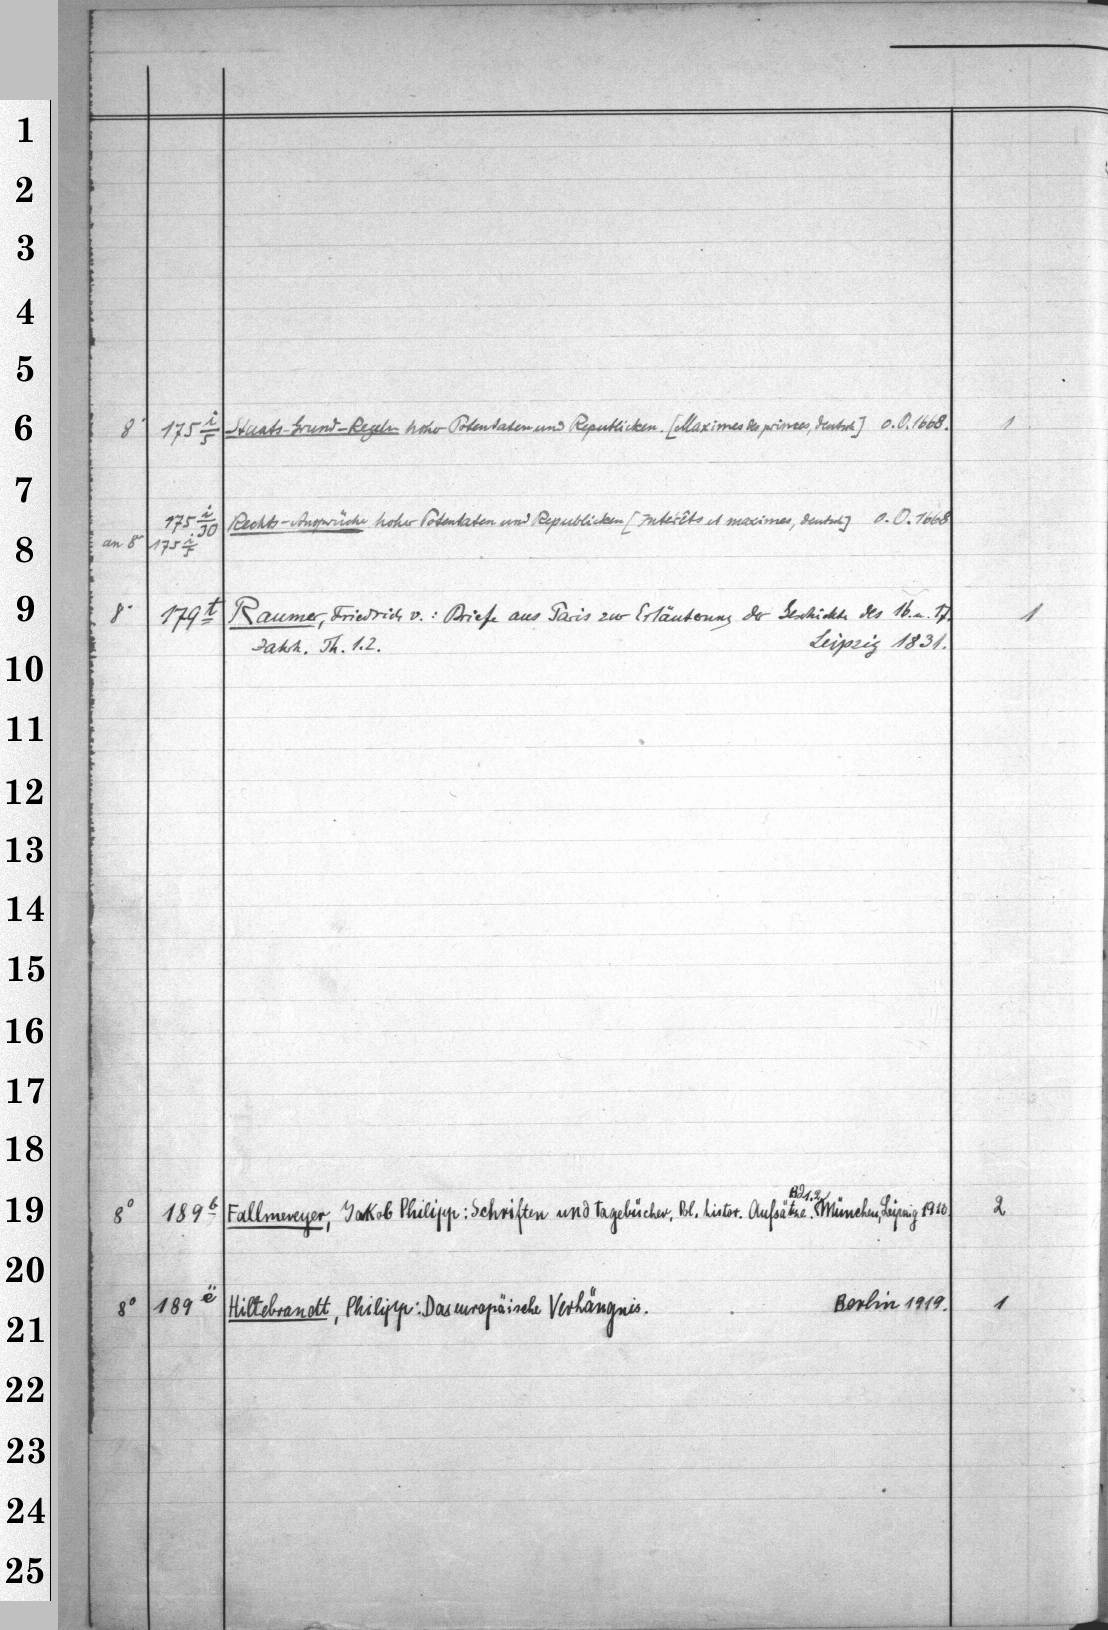 1
2
3
4
5
6 8° 175 i/5 Staats-Grund-Regeln hoher Potentaten und Republicken. [Maximes des princes, deutsch] o.O. 1668. 1
7
175 i/30 Rechts-Ansprüche hoher Potentaten und Republicken [Intérêts et maximes, deutsch] o.O. 1668
8 an 8° 175 i/5
9 8° 179 t Raumer, Friedrich v.: Briefe aus Paris zur Erläuterung der Geschichte des 16. u. 17. 1
Jahrh. Th. 1.2. Leipzig 1831.
10
11
12
13
14
15
16
17
18
Bd 1.2
19 8° 189 b Fallmereyer, Jakob Philipp: Schriften und Tagebücher, Pol. histor. Aufsätze. München, Leipzig 1910. 2
20
8° 189 ë Hiltebrandt, Philipp: Das europäische Verhängnis. Berlin 1919. 1
21
22
23
24
25